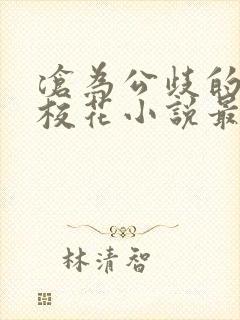 滄為公歧的
校花小說最
林清智